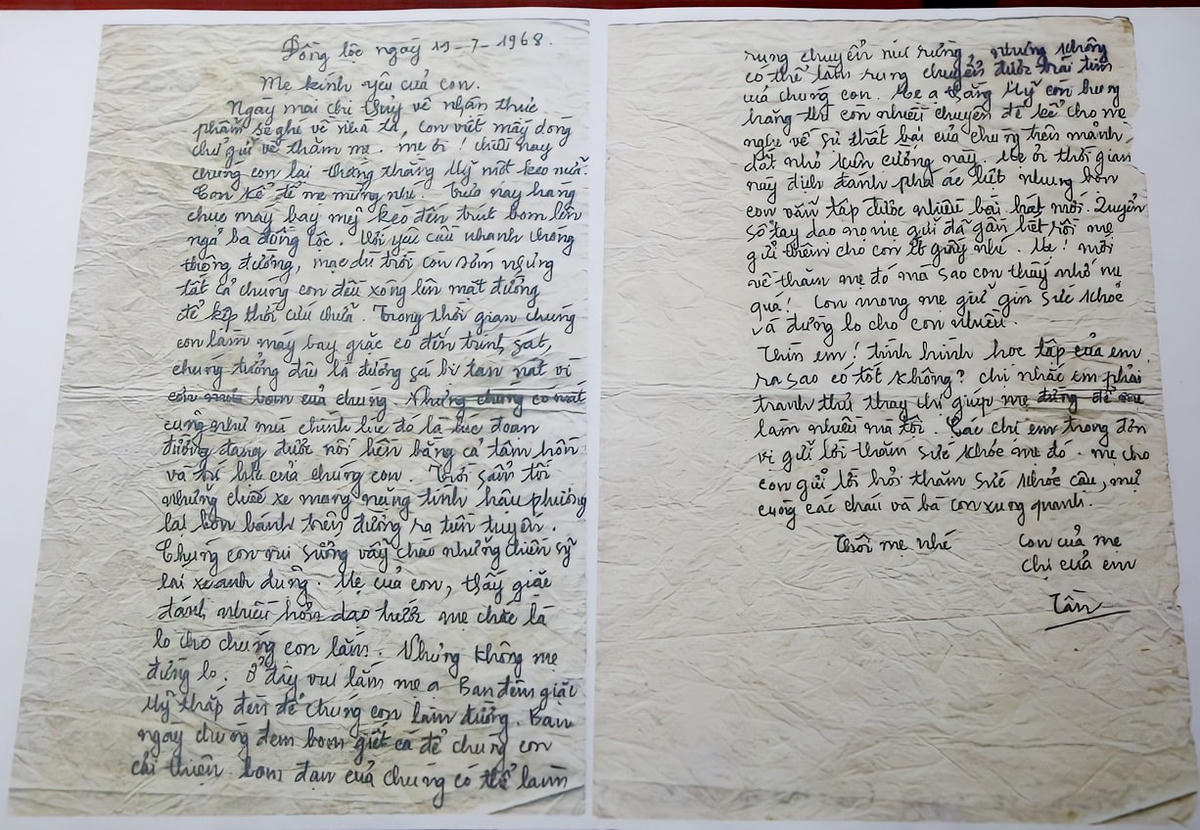 Đồng lộc ngày 19-7-1968.
Mẹ kính yêu của con.
Ngày mai chị Thủy về nhận thực
phẩm sẽ ghé về nhà ta, con viết mấy dòng
chữ gửi về thăm mẹ. mẹ ơi! chiều nay
chúng con lại thắng thằng Mỹ một keo nữa.
Con kể để mẹ mừng nhé. Trưa nay hàng
chục máy bay mỹ kéo đến trút bom lên
ngã ba đồng lộc. Với yêu cầu nhanh chóng
thông đường, mặc dù trời còn sớm nhưng
tất cả chúng con đều xông lên mặt đường
để kịp thời cứu chữa. Trong thời gian chúng
con làm máy bay giặc có đến trinh sát,
chúng tưởng đâu là đường sá bị tan nát vì
bom của chúng. Nhưng chúng có nát
cũng như mà chính lúc đó là lúc đoạn
đường đang được nối liền bằng cả tâm hồn
và trí lực của chúng con. Trời sẩm tối
những chiếc xe mang nặng tình hậu phương
lại bon bánh trên đường ra tiền tuyến.
Chúng con vui sướng vẫy chào những chiến sỹ
lái xe anh dũng. Mẹ của con, thấy giặc
đánh nhiều hơn dạo trước mẹ chắc là
lo cho chúng con lắm. Nhưng không mẹ
đừng lo. Ở đây vui lắm mẹ ạ Ban đêm giặc
Mỹ thắp đèn để chúng con làm đường. Ban
ngày chúng đem bom giết cá để chúng con
cải thiện bom đạn của chúng có thể làm
rung chuyển núi rừng, nhưng không
có thể làm rung chuyển được trái tim
của chúng con. Mẹ ạ thằng Mỹ còn hung
hăng thì còn nhiều chuyện để kể cho mẹ
nghe về sự thất bại của chúng trên mảnh
đất nhỏ kiên cường này. Mẹ ơi thời gian
này địch đánh phá ác liệt nhưng bọn
con vẫn tập được nhiều bài hát mới. Quyển
sổ tay dạo nọ mẹ gửi đã gần hết rồi mẹ
gửi thêm cho con ít giấy nhé. Mẹ! mới
về thăm mẹ đó mà sao con thấy nhớ mẹ
quá! Con mong mẹ giữ gìn sức khỏe
và đừng lo cho con nhiều.
Thìn em! tình hình học tập của em
ra sao có tốt không? chị nhắc em phải
tranh thủ thay chị giúp mẹ đừng để mẹ
làm nhiều mà tội. Các chị em trong đơn
vị gửi lời thăm sức khỏe mẹ đó. mẹ cho
con gửi lời hỏi thăm sức khỏe cậu, mự
cùng các cháu và bà con xung quanh.
Thôi mẹ nhé
Con của mẹ
chị của em
Tần